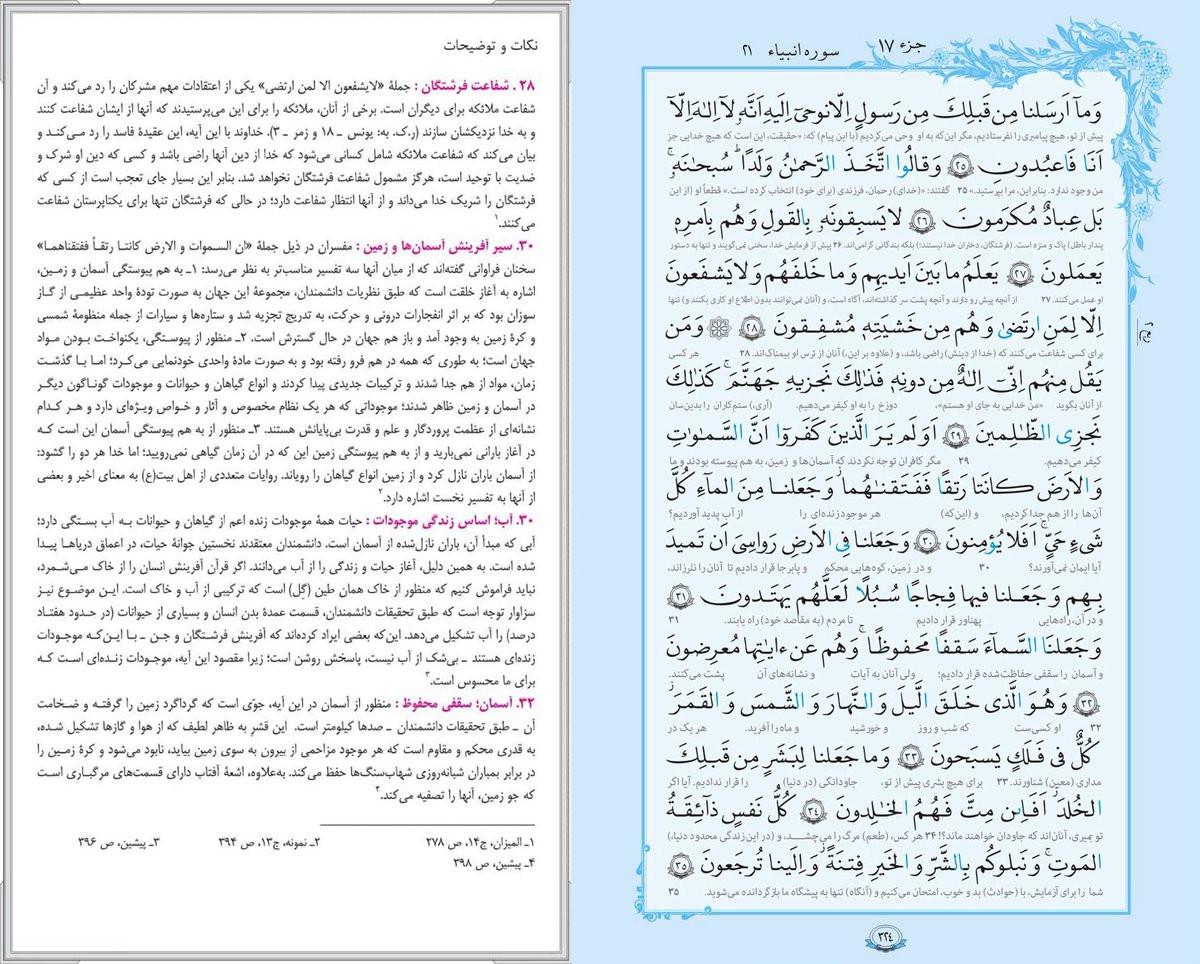 جزء ۱۷
سوره انبیاء ۲۱
وَمآ اَرسَلنا مِن قَبلِكَ مِن رَسولٍ اِلّا نوحیۤ اِلَیهِ اَنَّهٗ لاۤ اِلٰهَ اِلّاۤ
پیش از تو، هیچ پیامبری را نفرستادیم، مگر این‌که به او وحی می‌کردیم (با این پیام) که: «حقیقت، این است که هیچ خدایی جز
اَنَا فَاعبُدونِ ﴿۲۵﴾ وَقالُوا اتَّخَذَ الرَّحمٰنُ وَلَدًا ۗ سُبحٰنَهٗ ۚ
من وجود ندارد. بنابراین، مرا بپرستید.» ۲۵ گفتند: «(خدای) رحمان، فرزندی (برای خود) انتخاب کرده است.» قطعاً او (از این
بَل عِبادٌ مُكرَمونَ ﴿۲۶﴾ لا یَسبِقونَهٗ بِالقَولِ وَهُم بِاَمرِهٖ
پندار باطل) پاک و منزه است. (فرشتگان، دختران خدا نیستند؛) بلکه بندگانی گرامی‌اند. ۲۶ پیش از فرمایش خدا، سخنی نمی‌گویند و تنها به دستور
یَعمَلونَ ﴿۲۷﴾ یَعلَمُ ما بَینَ اَیدیهِم وَما خَلفَهُم وَلا یَشفَعونَ
او عمل می‌کنند. ۲۷ از آنچه پیش رو دارند و آنچه پشت سر گذاشته‌اند، آگاه است، و (آنان نمی‌توانند بدون اطلاع او کاری بکنند و) تنها
اِلّا لِمَنِ ارتَضیٰ وَهُم مِن خَشیَتِهٖ مُشفِقونَ ﴿۲۸﴾ وَمَن
برای کسی شفاعت می‌کنند که (خدا از دینش) راضی باشد، و (علاوه بر این،) آنان از ترس او بیمناک‌اند. ۲۸ هر کسی
یَقُل مِنهُم اِنّیۤ اِلٰهٌ مِن دونِهٖ فَذٰلِكَ نَجزیهِ جَهَنَّمَ ۚ كَذٰلِكَ
از آنان بگوید «من خدایی به جای او هستم»، دوزخ را به او کیفر می‌دهیم. (آری،) ستم‌کاران را بدین‌سان
نَجزِی الظّٰلِمینَ ﴿۲۹﴾ اَوَلَم یَرَ الَّذینَ كَفَرۤوا اَنَّ السَّمٰوٰتِ
کیفر می‌دهیم. ۲۹ مگر کافران توجه نکردند که آسمان‌ها و زمین، به هم پیوسته بودند و ما
وَالاَرضَ كانَتا رَتقًا فَفَتَقنٰهُما ۖ وَجَعَلنا مِنَ المآءِ كُلَّ
آن‌ها را از هم جدا کردیم، و (این‌که) هر موجود زنده‌ای را از آب پدید آوردیم؟
شَیءٍ حَیٍّ ۖ اَفَلا یُؤمِنونَ ﴿۳۰﴾ وَجَعَلنا فِی الاَرضِ رَواسِیَ اَن تَمیدَ
آیا ایمان نمی‌آورند؟ ۳۰ و در زمین، کوه‌هایی محکم و پابرجا قرار دادیم تا آنان را نلرزاند،
بِهِم وَجَعَلنا فیها فِجاجًا سُبُلًا لَعَلَّهُم یَهتَدونَ ﴿۳۱﴾
و در آن، راه‌هایی پهناور قرار دادیم تا مردم (به مقاصد خود) راه یابند. ۳۱
وَجَعَلنَا السَّمآءَ سَقفًا مَحفوظًا ۖ وَهُم عَن ءایٰتِها مُعرِضونَ
و آسمان را سقفی حفاظت‌شده قرار دادیم؛ ولی آنان به آیات و نشانه‌های آن پشت می‌کنند.
﴿۳۲﴾ وَهُوَ الَّذی خَلَقَ الَّیلَ وَالنَّهارَ وَالشَّمسَ وَالقَمَرَ ۖ
۳۲ او کسی‌ست که شب و روز و خورشید و ماه را آفرید. هر یک در
كُلٌّ فی فَلَكٍ یَسبَحونَ ﴿۳۳﴾ وَما جَعَلنا لِبَشَرٍ مِن قَبلِكَ
مداری (معین) شناورند. ۳۳ برای هیچ بشری پیش از تو، جاودانگی (در دنیا) را قرار ندادیم. آیا اگر
الخُلدَ ۖ اَفَا۟ئِن مِتَّ فَهُمُ الخٰلِدونَ ﴿۳۴﴾ كُلُّ نَفسٍ ذآئِقَةُ
تو بمیری، آنان‌اند که جاودان خواهند ماند؟! ۳۴ هر کس، (طعم) مرگ را می‌چشد، و (در این زندگی محدود دنیا،)
المَوتِ ۗ وَنَبلوكُم بِالشَّرِّ وَالخَیرِ فِتنَةً ۖ وَاِلَینا تُرجَعونَ ﴿۳۵﴾
شما را برای آزمایش، با (حوادث) بد و خوب، امتحان می‌کنیم و (آنگاه) تنها به پیشگاه ما بازگردانده می‌شوید. ۳۵
۳۲۴
نکات و توضیحات
۲۸. شفاعت فرشتگان : جملهٔ «لایشفعون الا لمن ارتضی» یکی از اعتقادات مهم مشرکان را رد می‌کند و آن
شفاعت ملائکه برای دیگران است. برخی از آنان، ملائکه را برای این می‌پرستیدند که آنها از ایشان شفاعت کنند
و به خدا نزدیکشان سازند (ر.ک. به: یونس ـ ۱۸ و زمر ـ ۳). خداوند با این آیه، این عقیدهٔ فاسد را رد می‌کند و
بیان می‌کند که شفاعت ملائکه شامل کسانی می‌شود که خدا از دین آنها راضی باشد و کسی که دین او شرک و
ضدیت با توحید است، هرگز مشمول شفاعت فرشتگان نخواهد شد. بنابر این بسیار جای تعجب است از کسی که
فرشتگان را شریک خدا می‌داند و از آنها انتظار شفاعت دارد؛ در حالی که فرشتگان تنها برای یکتاپرستان شفاعت
می‌کنند.۱
۳۰. سیر آفرینش آسمان‌ها و زمین : مفسران در ذیل جملهٔ «ان السموات و الارض کانتا رتقاً ففتقناهما»
سخنان فراوانی گفته‌اند که از میان آنها سه تفسیر مناسب‌تر به نظر می‌رسد: ۱ـ به هم پیوستگی آسمان و زمین،
اشاره به آغاز خلقت است که طبق نظریات دانشمندان، مجموعهٔ این جهان به صورت تودهٔ واحد عظیمی از گاز
سوزان بود که بر اثر انفجارات درونی و حرکت، به تدریج تجزیه شد و ستاره‌ها و سیارات از جمله منظومهٔ شمسی
و کرهٔ زمین به وجود آمد و باز هم جهان در حال گسترش است. ۲ـ منظور از پیوستگی، یکنواخت بودن مواد
جهان است؛ به طوری که همه در هم فرو رفته بود و به صورت مادهٔ واحدی خودنمایی می‌کرد؛ اما با گذشت
زمان، مواد از هم جدا شدند و ترکیبات جدیدی پیدا کردند و انواع گیاهان و حیوانات و موجودات گوناگون دیگر
در آسمان و زمین ظاهر شدند؛ موجوداتی که هر یک نظام مخصوص و آثار و خواص ویژه‌ای دارد و هر کدام
نشانه‌ای از عظمت پروردگار و علم و قدرت بی‌پایانش هستند. ۳ـ منظور از به هم پیوستگی آسمان این است که
در آغاز بارانی نمی‌بارید و از به هم پیوستگی زمین این که در آن زمان گیاهی نمی‌رویید؛ اما خدا هر دو را گشود:
از آسمان باران نازل کرد و از زمین انواع گیاهان را رویاند. روایات متعددی از اهل بیت(ع) به معنای اخیر و بعضی
از آنها به تفسیر نخست اشاره دارد.۲
۳۰. آب؛ اساس زندگی موجودات : حیات همهٔ موجودات زنده اعم از گیاهان و حیوانات به آب بستگی دارد؛
آبی که مبدأ آن، باران نازل‌شده از آسمان است. دانشمندان معتقدند نخستین جوانهٔ حیات، در اعماق دریاها پیدا
شده است. به همین دلیل، آغاز حیات و زندگی را از آب می‌دانند. اگر قرآن آفرینش انسان را از خاک می‌شمرد،
نباید فراموش کنیم که منظور از خاک همان طین (گِل) است که ترکیبی از آب و خاک است. این موضوع نیز
سزاوار توجه است که طبق تحقیقات دانشمندان، قسمت عمدهٔ بدن انسان و بسیاری از حیوانات (در حدود هفتاد
درصد) را آب تشکیل می‌دهد. این‌که بعضی ایراد کرده‌اند که آفرینش فرشتگان و جن ـ با این‌که موجودات
زنده‌ای هستند ـ بی‌شک از آب نیست، پاسخش روشن است؛ زیرا مقصود این آیه، موجودات زنده‌ای است که
برای ما محسوس است.۳
۳۲. آسمان؛ سقفی محفوظ : منظور از آسمان در این آیه، جوّی است که گرداگرد زمین را گرفته و ضخامت
آن ـ طبق تحقیقات دانشمندان ـ صدها کیلومتر است. این قشرِ به ظاهر لطیف که از هوا و گازها تشکیل شده،
به قدری محکم و مقاوم است که هر موجود مزاحمی از بیرون به سوی زمین بیاید، نابود می‌شود و کرهٔ زمین را
در برابر بمباران شبانه‌روزی شهاب‌سنگ‌ها حفظ می‌کند. به‌علاوه، اشعهٔ آفتاب دارای قسمت‌های مرگباری است
که جو زمین، آنها را تصفیه می‌کند.۴
۱ـ المیزان، ج۱۴، ص ۲۷۸ ۲ـ نمونه، ج۱۳، ص ۳۹۴ ۳ـ پیشین، ص ۳۹۶
۴ـ پیشین، ص ۳۹۸